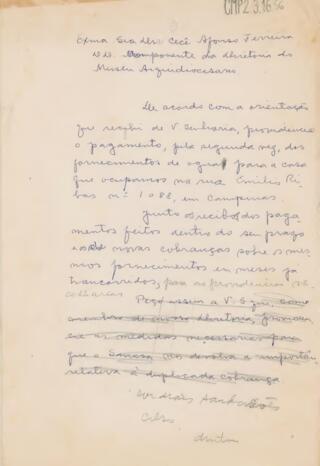 CMP2.3.16.56
Exma Sra Dra. Cecê Afonso Ferreira
DD. Componente da Diretoria do
Museu Arquidiocesano
De acordo com a orientação
que recebi de V Senhoria, providenciei
o pagamento, pela segunda vez, dos
fornecimentos de agua para a casa
que ocupamos na rua Emilio Ri-
bas nº 1088, em Campinas.
Junto os recibos dos paga-
mentos feitos dentro do seu prazo
e as novas cobranças sobre os mes-
mos fornecimentos em meses já
transcorridos, para as providencias ne-
cessarias
Peço assim a V. S. que, como
membro de nossa diretoria, promova
as medidas necessarias para
que o Sanasa nos devolva a importân
relativa à duplicada cobrança
Cordiais saudações
Celso
diretor